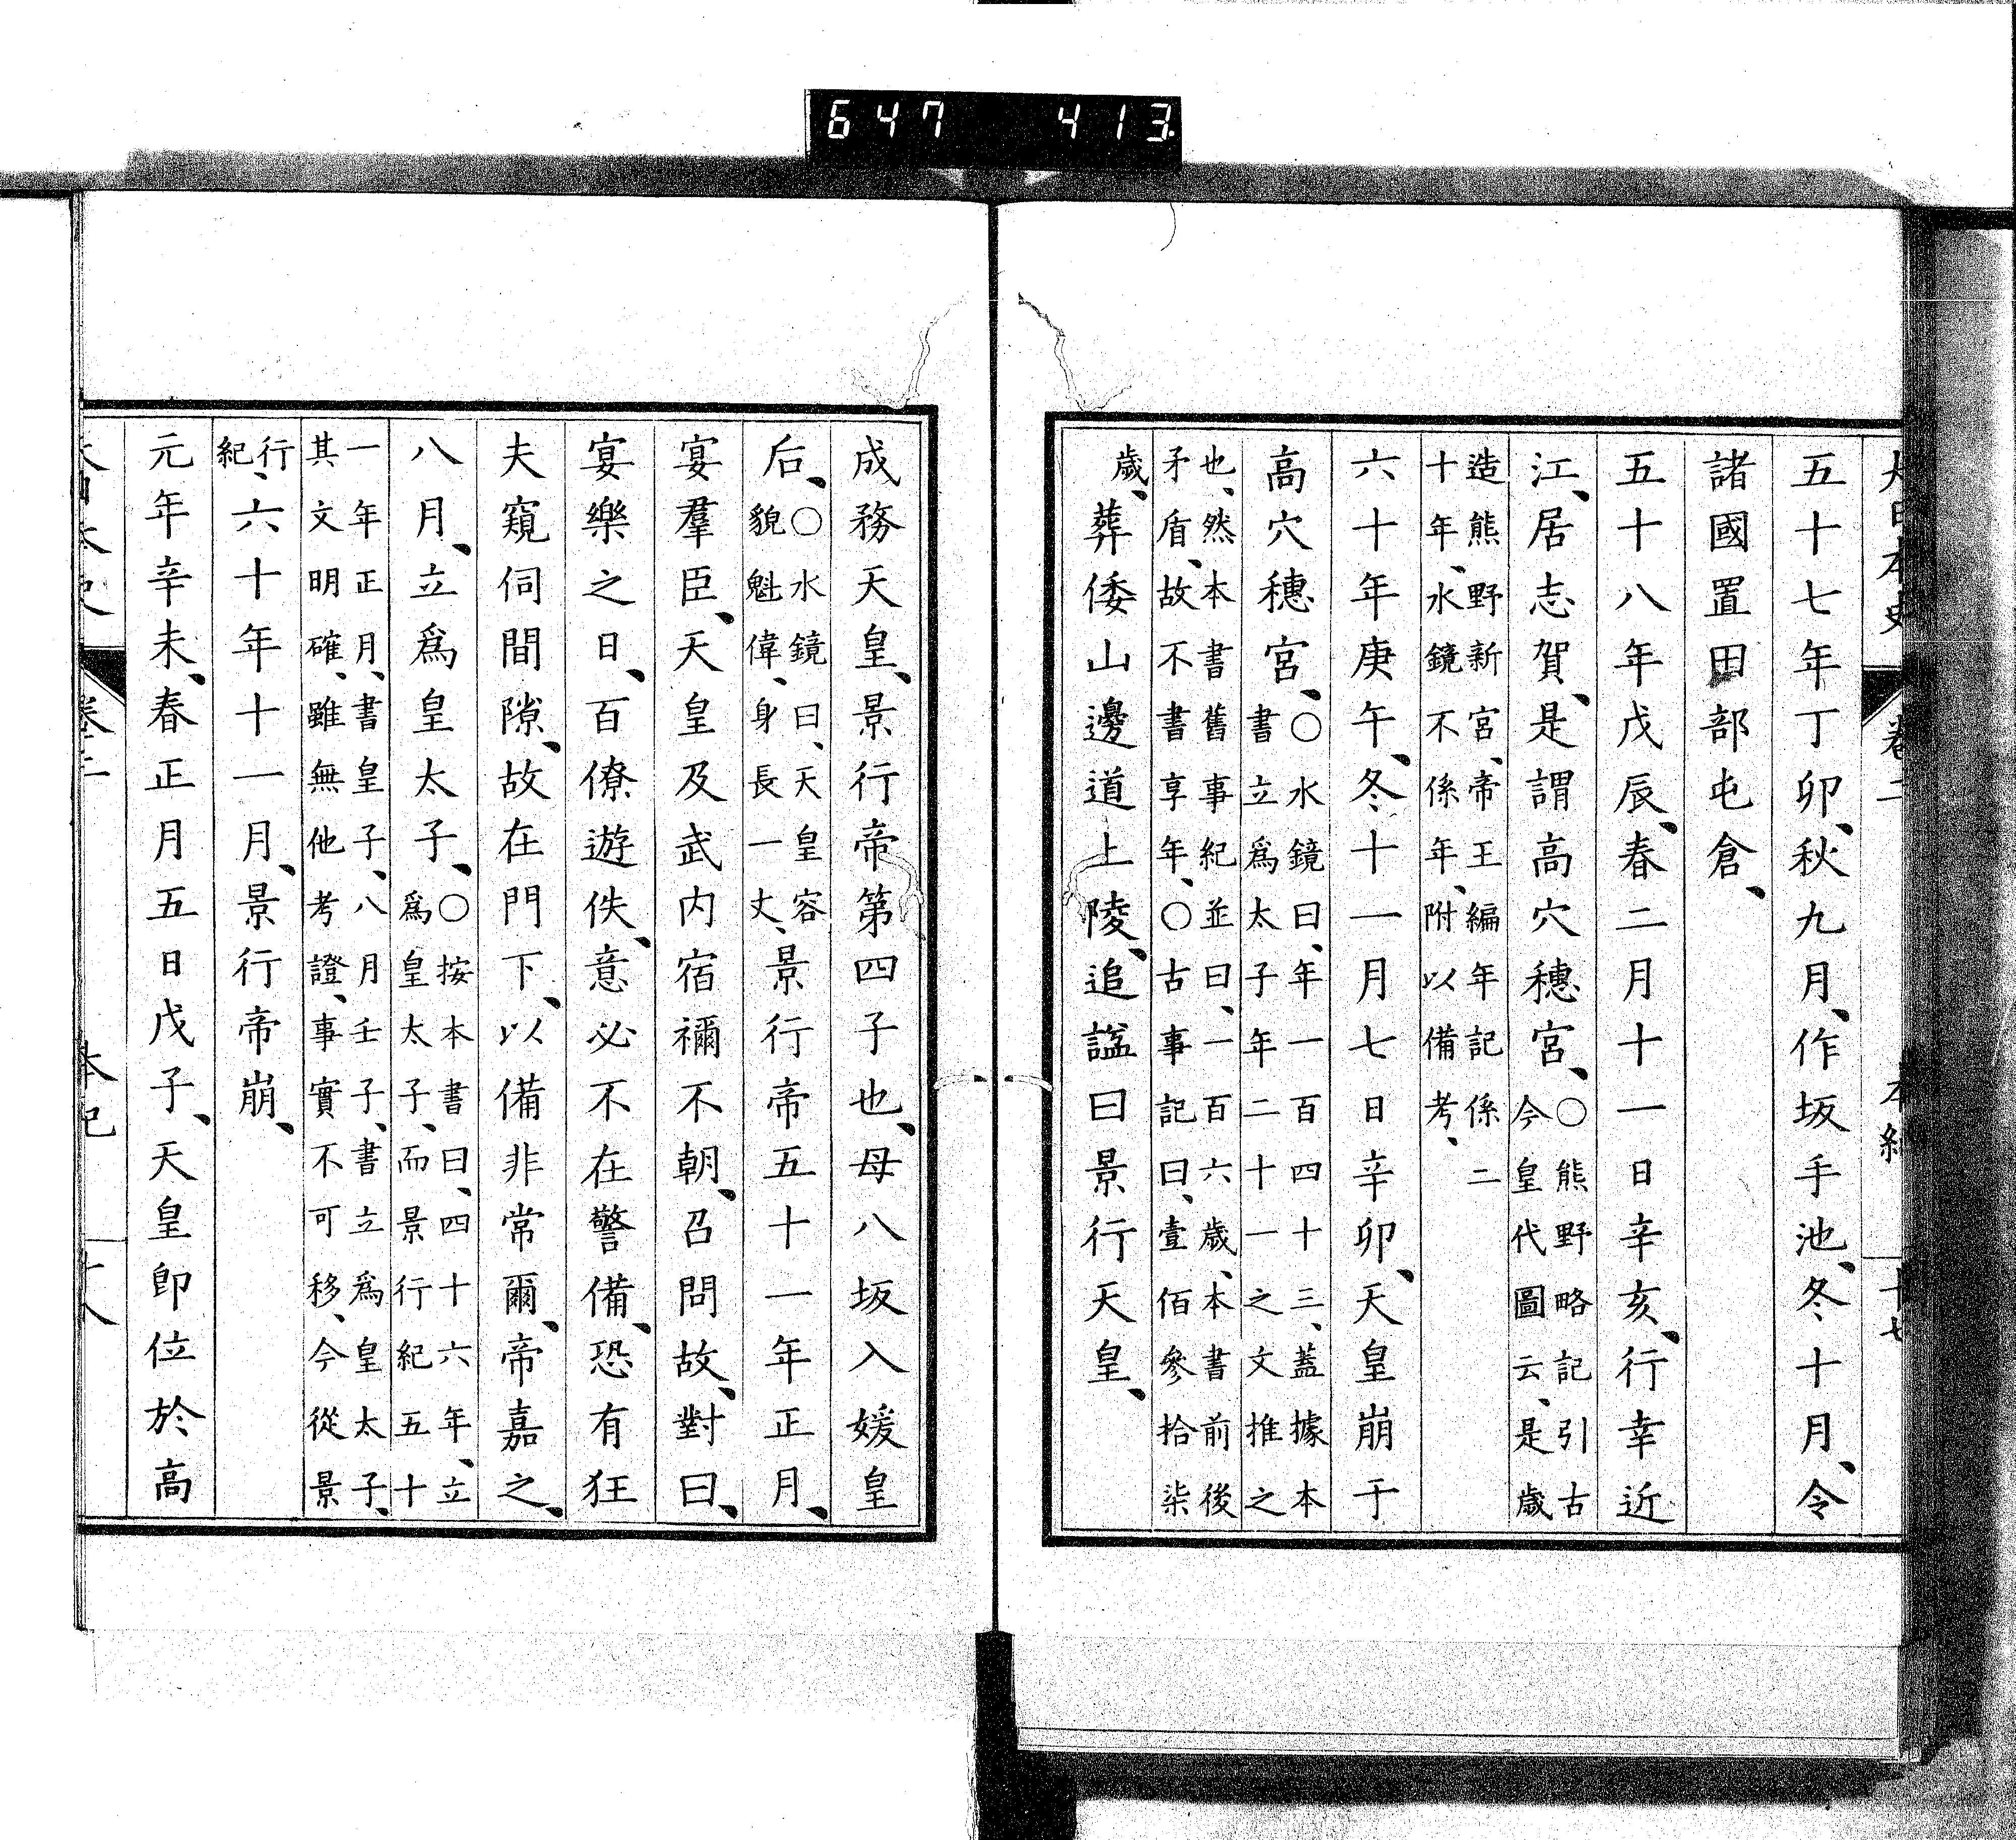 647 413
大日本史 卷二 本紀 十七
五十七年丁卯、秋九月、作坂手池、冬十月、令
諸國置田部屯倉、
五十八年戊辰、春二月十一日辛亥、行幸近
江、居志賀、是謂高穴穗宮、○熊野略記引古
今皇代圖云、是歲
造熊野新宮、帝王編年記係二
十年、水鏡不係年、附以備考、
六十年庚午、冬十一月七日辛卯、天皇崩于
高穴穗宮、○水鏡曰、年一百四十三、蓋據本
書立爲太子年二十一之文推之
也、然本書舊事紀並曰、一百六歲、本書前後
矛盾、故不書享年、○古事記曰、壹佰參拾柒
歲、葬倭山邊道上陵、追諡曰景行天皇、
成務天皇、景行帝第四子也、母八坂入媛皇
后、○水鏡曰、天皇容
貌魁偉、身長一丈、景行帝五十一年正月、
宴羣臣、天皇及武内宿禰不朝、召問故、對曰、
宴樂之日、百僚遊佚、意必不在警備、恐有狂
夫窺伺間隙、故在門下、以備非常爾、帝嘉之、
八月、立爲皇太子、○按本書曰、四十六年、立
爲皇太子、而景行紀五十
一年正月、書皇子、八月壬子、書立爲皇太子、
其文明確、雖無他考證、事實不可移、今從景
行
紀、六十年十一月、景行帝崩、
元年辛未、春正月五日戊子、天皇卽位於高
大日本史 卷二 本紀 十八